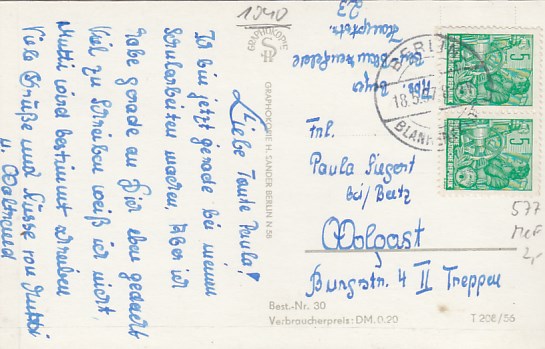 1040
GRAPHOKOPIE
GRAPHOKOPIE H. SANDER BERLIN N 56
Liebe Tante Paula!
Ich bin jetzt gerade bei meinen
Schularbeiten machen, Aber ich
habe gerade an Dir eben gedacht
Viel zu schreiben weiß ich nicht,
Mutti wird bestimmt schreiben
Viele Grüße und Küsse von Mutti
u. Waltraud
Blankenfelde
Hauptstr.
23
BERLIN
18.5.57
DEUTSCHE DEMOKRATISCHE REPUBLIK
5
5
Frl.
Paula Siegert
bei/Beetz
Wolgast
Burgstraße 4 II Treppen
577
MeF
2,-
Best.-Nr. 30
Verbraucherpreis: DM. 0.20
T 208/56